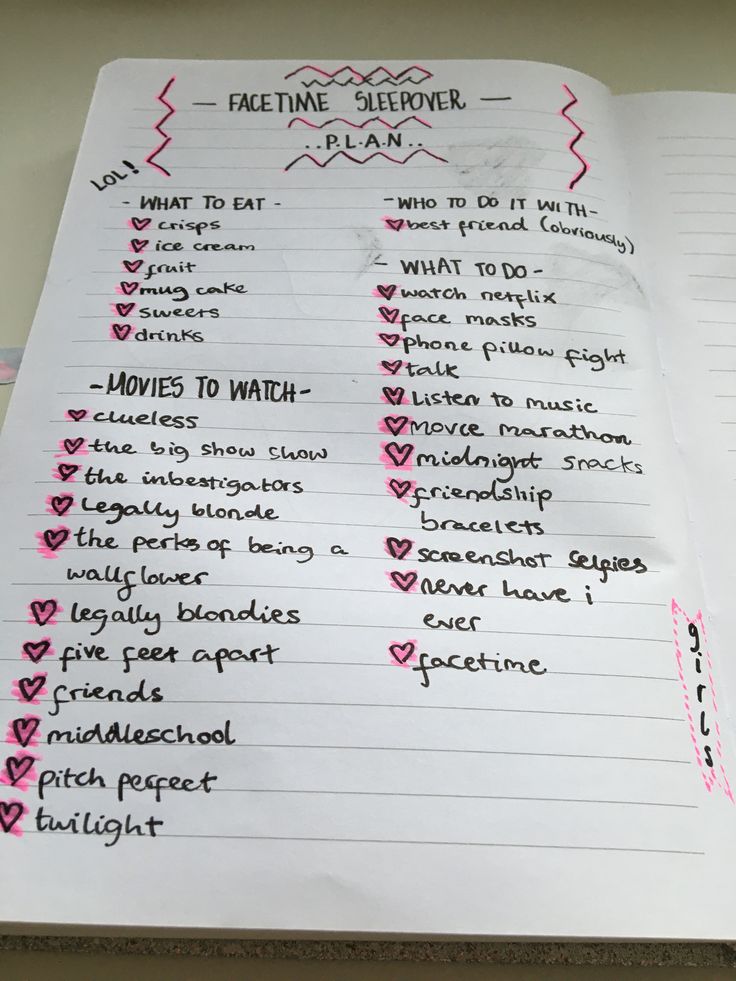 — FACETIME SLEEPOVER —
..P.L.A.N..
LOL!
- WHAT TO EAT -
crisps
ice cream
fruit
mug cake
sweets
drinks
- MOVIES TO WATCH -
clueless
the big show show
the inbestigators
Legally blonde
the perks of being a
wallflower
legally blondies
five feet apart
friends
middleschool
pitch perfect
twilight
- WHO TO DO IT WITH -
best friend (obviously)
- WHAT TO DO -
watch netflix
face masks
phone pillow fight
talk
Listen to music
movie marathon
midnight snacks
friendship
bracelets
screenshot selfies
never have i
ever
facetime
girls